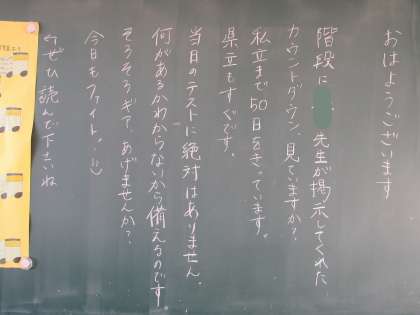 おはようございます
階段に 先生が掲示してくれた
カウントダウン、見ていますか？
私立まで50日をきっています。
県立もすぐです。
当日のテストに絶対はありません。
何があるかわからないから備えるのです
そろそろギア、あげませんか？
今日もファイト。:)
ぜひ読んで下さいね